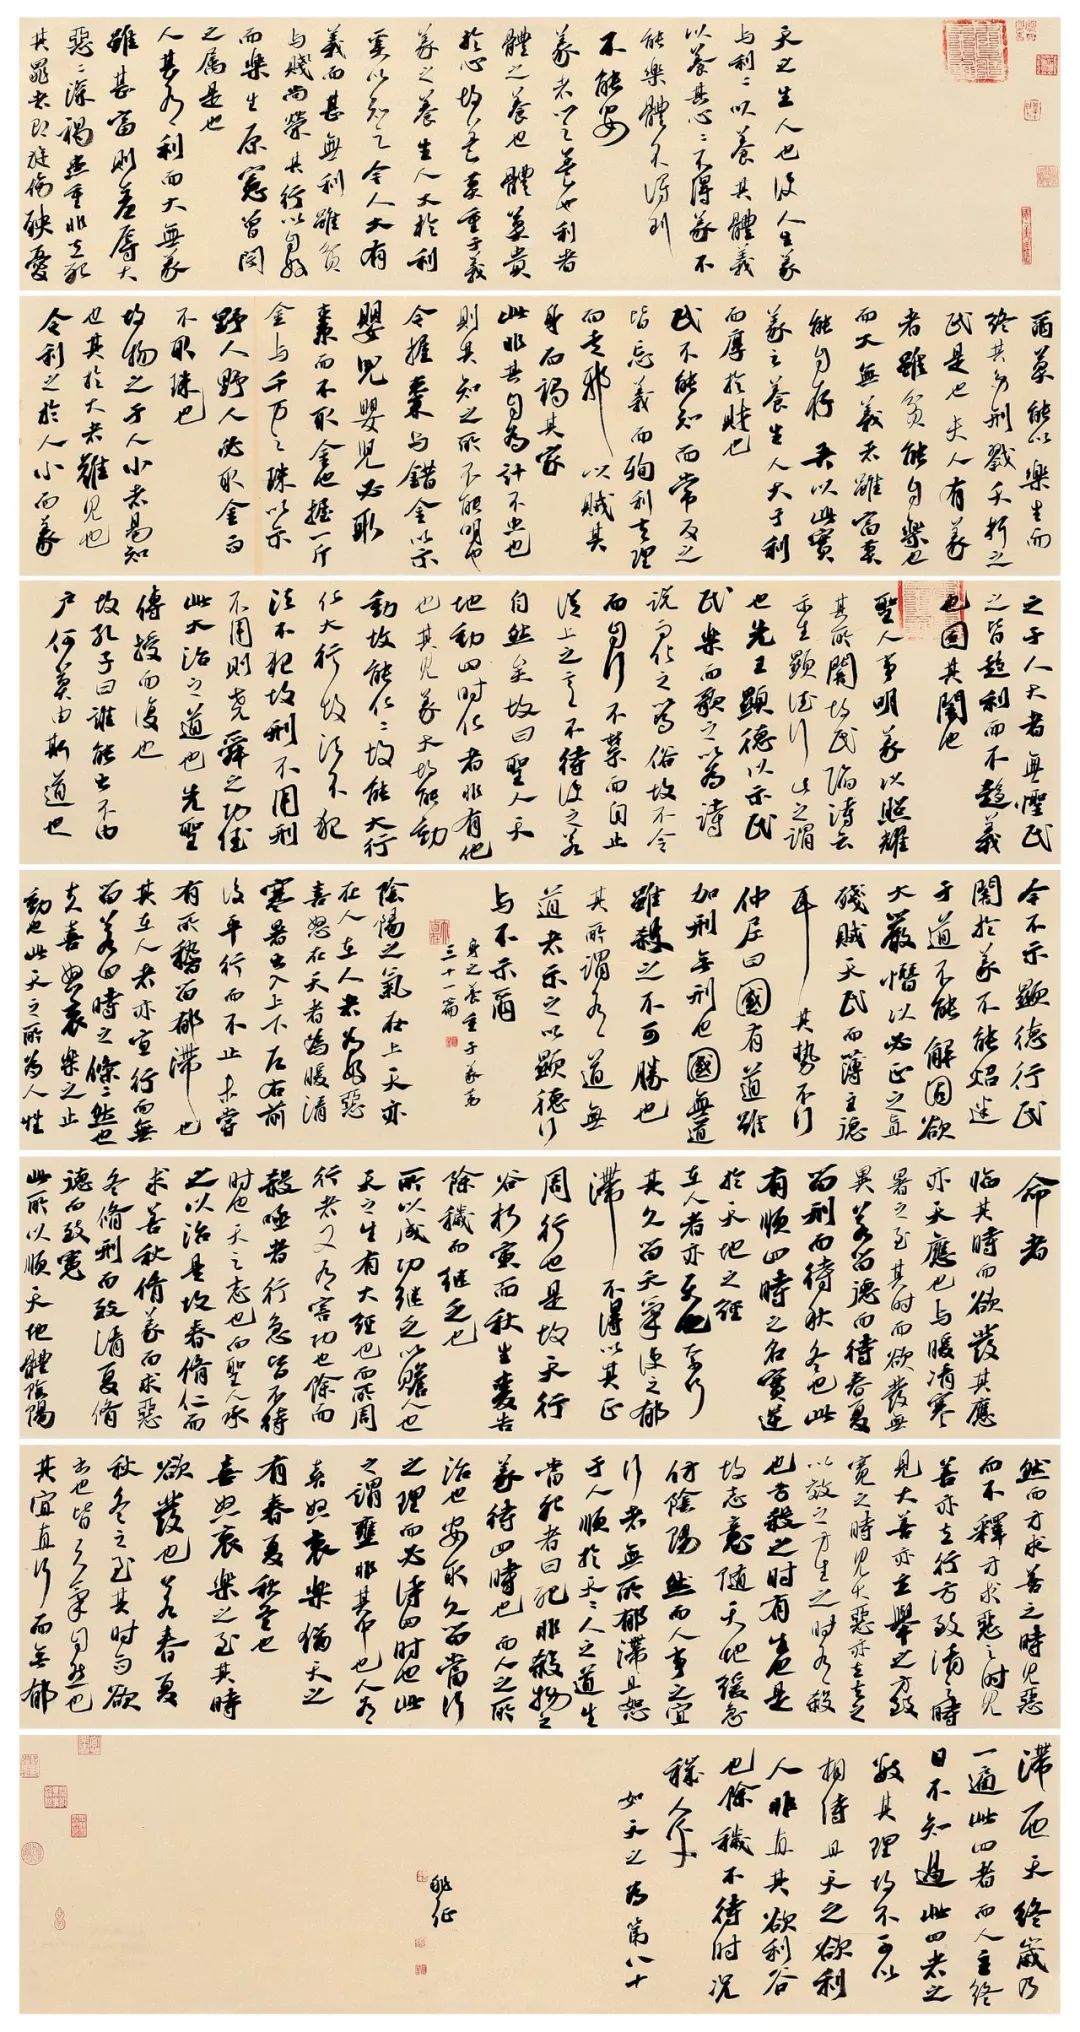 天之生人也使人生義
與利二以養其體義
以養其心二不得義不
能樂體不得利
不能安
義者心之養也利者
體之養也體莫貴
於心故養莫重于義
義之養生人大於利
奚以知之今人大有
義而甚無利雖貧
與賤尚榮其行以自好
而樂生原憲曾閔
之屬是也
人甚有利而大無義
雖甚富則羞辱大
惡二深禍患重非立死
其罪者即旋傷殃憂
爾莫能以樂生而
終其身刑戮夭折之
民是也夫人有義
者雖貧能自樂也
而大無義者雖富莫
能自存吾以此實
義之養生人大于利
而厚於財也
民不能知而常反之
皆忘義而殉利去理
而走邪以賊其
身而禍其家
此非其自為計不忠也
則其知之所不能明也
今握棗與錯金以示
嬰兒嬰兒必取
棗而不取金也握一斤
金與千万之珠以示
野人野人必取金而
不取珠也
故物之于人小者易知
也其於大者難見也
今利之於人小而義
之于人大者無怪民
之皆趨利而不趨義
也固其闇也
聖人事明義以照耀
其所闇故民不陷詩云
示我顯德行此之謂
也先王顯德以示民
民樂而歌之以為詩
說而化之為俗故不令
而自行不禁而自止
從上之意不待使之若
自然矣故曰聖人天
地動四時化者非有他
也其見義大故能動
動故能化二故能大行
化大行故法不犯
法不犯故刑不用刑
不用則堯舜之功德
此大治之道也先聖
傳授而復也
故孔子曰誰能出不由
戶何莫由斯道也
今不示顯德行民
闇於義不能炤迷
于道不能解固欲
大嚴憯以必正之直
殘賊天民而薄主德
耳其勢不行
仲尼曰國有道雖
加刑無刑也國無道
雖殺之不可勝也
其所謂有道無
道者示之以顯德行
與不示爾
身之養重于義第
三十一篇
陰陽之氣在上天亦
在人在人者為好惡
喜怒在天者為暖清
寒暑出入上下左右前
後平行而不止未嘗
有所稽留鬱滯也
其在人者亦宜行而無
留若四時之條二然也
夫喜怒哀樂之止
動也此天之所為人性
命者
臨其時而欲發其應
亦天應也與暖清寒
暑之至其時而欲發無
異若留德而待春夏
留刑而待秋冬也此
有順四時之名實逆
於天地之經
在人者亦天也奈何
其久留天氣使之鬱
滯不得以其正
周行也是故天行
穀朽寅而秋生麥告
除穢而繼乏也
所以成功繼乏以贍人也
天之生有大經也而所周
行者又有害功也除而
殺殛者行急皆不待
時也天之志也而聖人承
之以治是故春脩仁而
求善秋脩義而求惡
冬脩刑而致清夏脩
德而致寬
此所以順天地體陰陽
然而方求善之時見惡
而不釋方求惡之時見
善亦立行方致清之時
見大善亦立舉之方致
寬之時見大惡亦立去之
以效之方生之時有殺
也方殺之時有生也是
故志意隨天地緩急
仿陰陽然而人事之宜
行者無所鬱滯且恕
于人順於天二人之道
當死者曰死非殺物之
義待四時也而人之所
治也安取久留當行
之理而必待四時也此
之謂壅非其中也人有
喜怒哀樂猶天之
有春夏秋冬也
喜怒哀樂之至其時
欲發也若春夏
秋冬之至其時而欲
出也皆天氣自然也
其宜直行而無鬱
滯一也天終歲乃
一遍此四者而人主終
日不知過此四者之
數其理故不可以
相待且天之欲利
人非直其欲利穀
也除穢不待時況
穢人乎
如天之為第八十